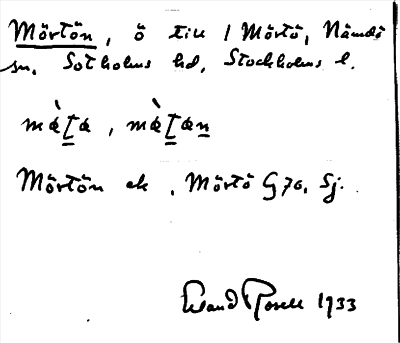 Mörtön, ö till 1 Mörtö, Nämdö
sn. Sotholms hd, Stockholms l.
Mörtön ek. Mörtö G 70, Sj.
Erland Rosell 1933